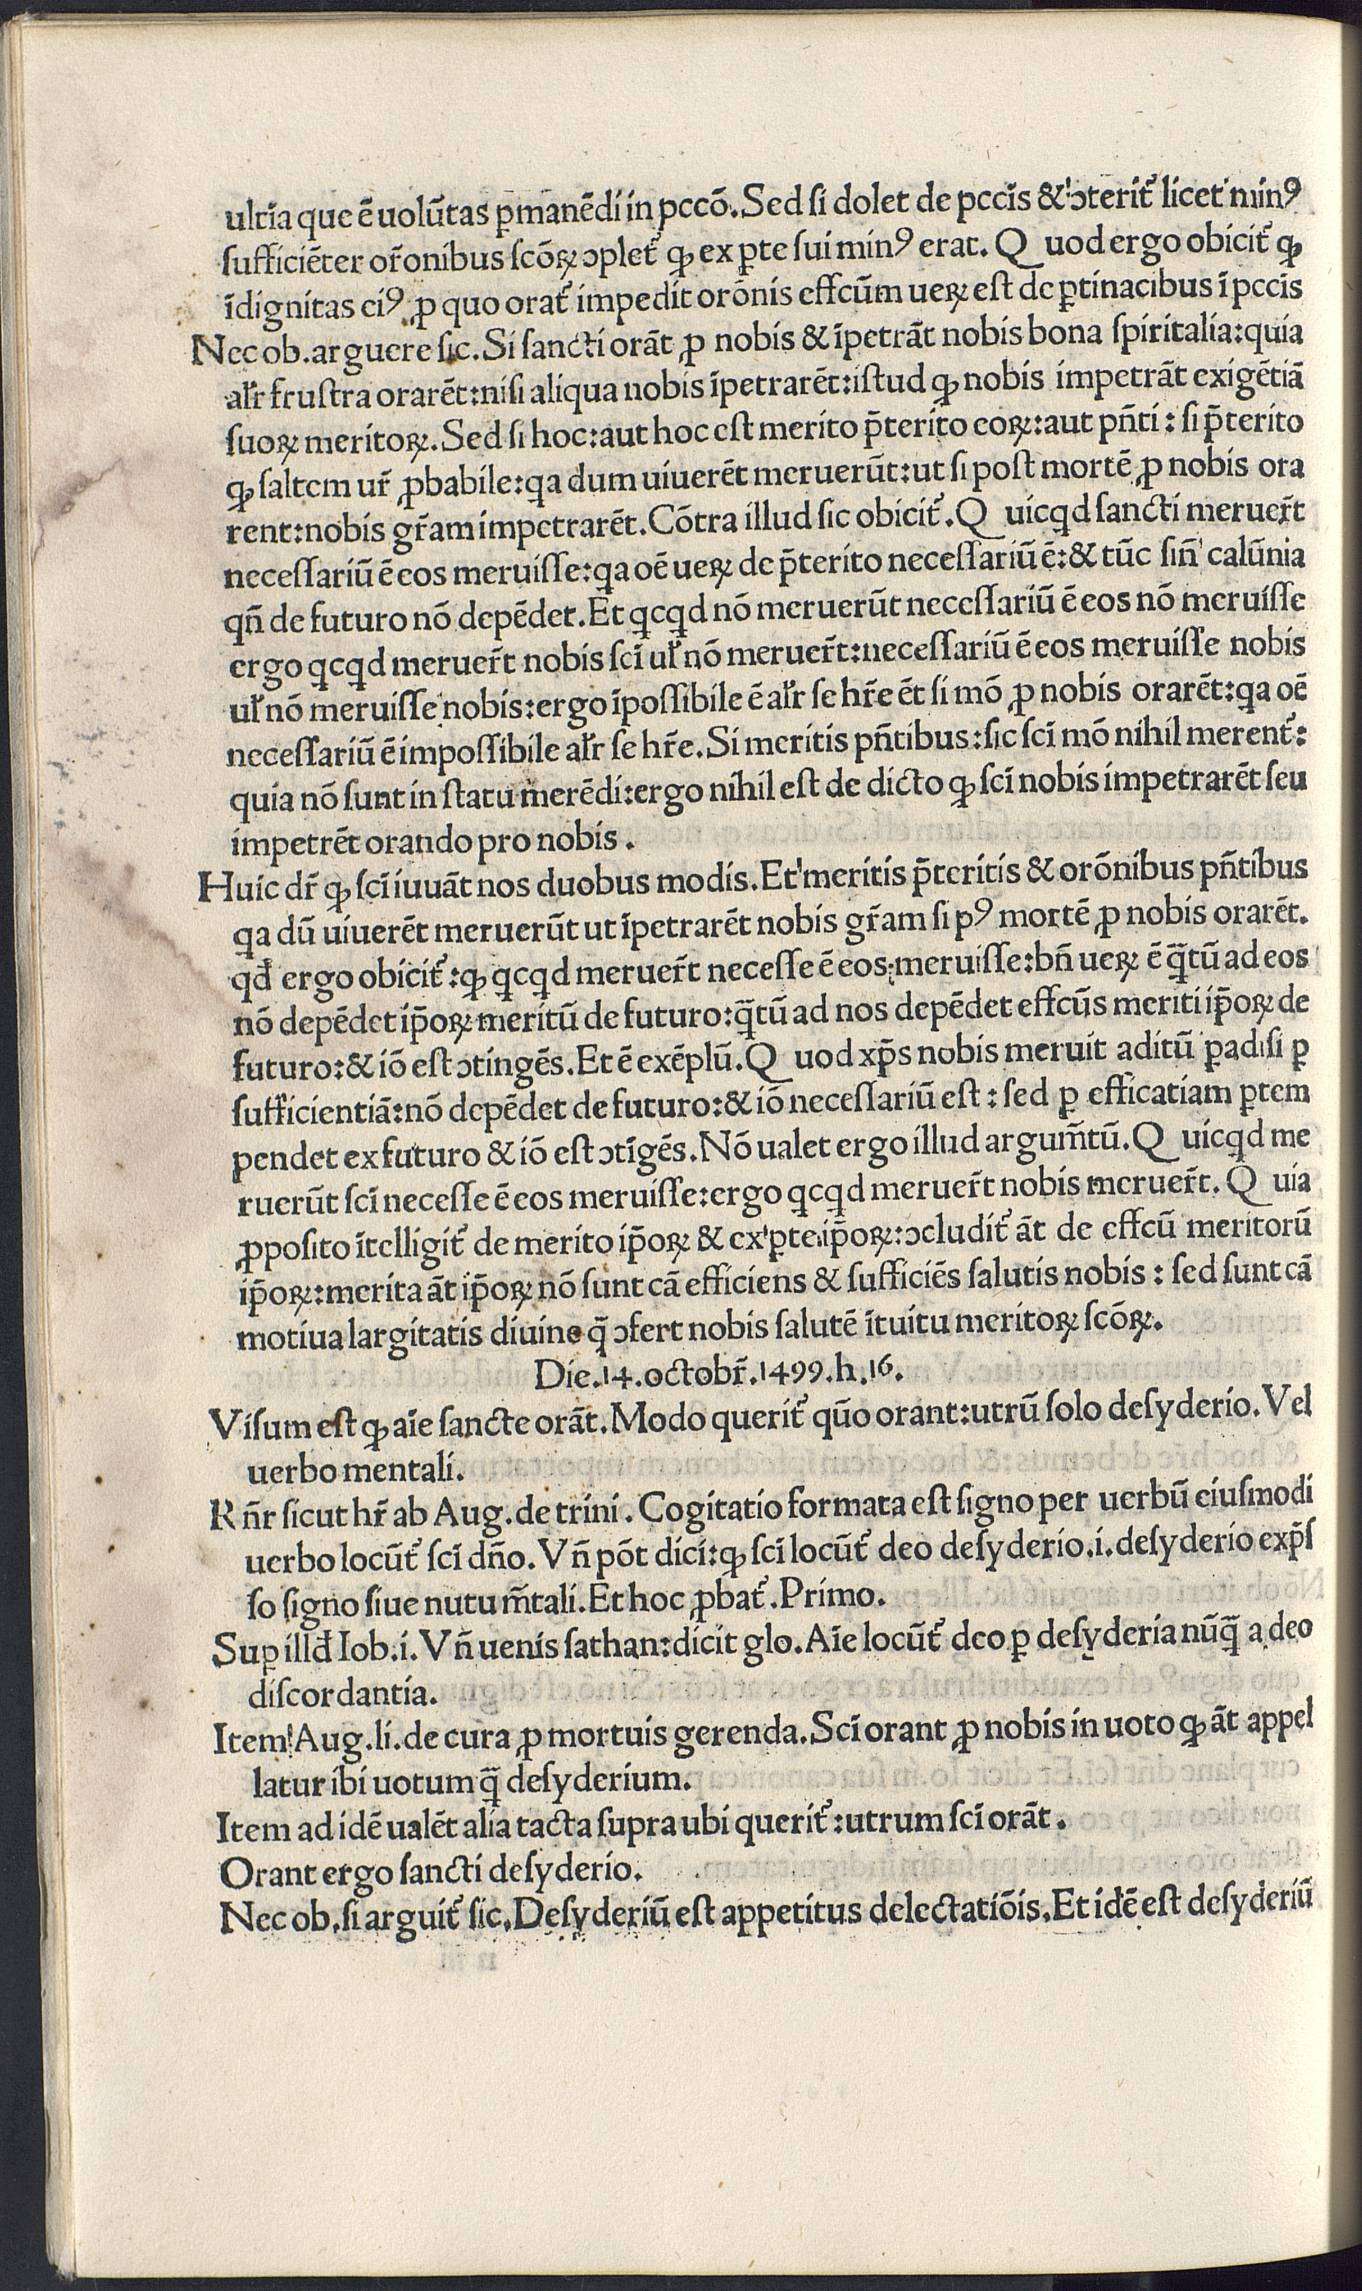 ultīa que ē uolūtas ꝑmanēdi in pccō. Sed si dolet de pccīs & ↄterit᷑ licet minꝰ
sufficiēter or̄onibus scōꝝ ↄplet᷑ ꝙ ex ꝑte sui minꝰ erat. Q uod ergo obicit᷑ ꝙ
īdignitas eiꝰ ꝓ quo orat᷑ impedit orōnis effcūm ueꝝ est de ꝑtinacibus ī pccīs
Nec ob. arguere sic. Si sancti orāt ꝓ nobis & īpetrāt nobis bona spiritalia: quia
al̄r frustra orarēt: nisi aliqua nobis īpetrarēt: istud ꝙ nobis impetrāt exigētiā
suoꝝ meritoꝝ. Sed si hoc: aut hoc est merito p̄terito eoꝝ: aut pn̄ti: si p̄terito
ꝙ saltem ur̄ ꝓbabile: qa dum uiuerēt meruerūt: ut si post mortē ꝓ nobis ora
rent: nobis gr̄am impetrarēt. Cōtra illud sic obicit᷑. Q uicqd sancti meruer̄t
necessariū ē eos meruisse: qa oē ueꝝ de p̄terito necessariū ē: & tūc sin̄ calūnia
qn̄ de futuro nō depēdet. Et qcqd nō meruerūt necessariū ē eos nō meruisse
ergo qcqd meruer̄t nobis scī ul̄ nō meruer̄t: necessariū ē eos meruisse nobis
ul̄ nō meruisse nobis: ergo īpossibile ē al̄r se hr̄e ēt si mō ꝓ nobis orarēt: qa oē
necessariū ē impossibile al̄r se hr̄e. Si meritis pn̄tibus: sic scī mō nihil merent᷑:
quia nō sunt in statu merēdi: ergo nihil est de dicto ꝙ scī nobis impetrarēt seu
impetrēt orando pro nobis.
Huic dr̄ ꝙ scī iuuāt nos duobus modis. Et meritis p̄teritis & orōnibus pn̄tibus
qa dū uiuerēt meruerūt ut īpetrarēt nobis gr̄am si pꝰ mortē ꝓ nobis orarēt.
qd̄ ergo obicit᷑: ꝙ qcqd meruer̄t necesse ē eos meruisse: bn̄ ueꝝ ē q̄tū ad eos
nō depēdet ip̄oꝝ meritū de futuro: q̄tū ad nos depēdet effcūs meriti ip̄oꝝ de
futuro: & iō est ↄtingēs. Et ē exēplū. Q uod xp̄s nobis meruit aditū ꝑadisi ꝑ
sufficientiā: nō depēdet de futuro: & iō necessariū est: sed ꝑ efficatiam ꝑtem
pendet ex futuro & iō est ↄtīgēs. Nō ualet ergo illud argum̄tū. Q uicqd me
ruerūt scī necesse ē eos meruisse: ergo qcqd meruer̄t nobis meruer̄t. Q uia
ꝓposito ītelligit᷑ de merito ip̄oꝝ & ex ꝑte ip̄oꝝ: ↄcludit᷑ āt de effcū meritorū
ip̄oꝝ: merita āt ip̄oꝝ nō sunt cā efficiens & sufficiēs salutis nobis: sed sunt cā
motiua largitatis diuine q̄ ↄfert nobis salutē ītuitu meritoꝝ scōꝝ.
Die. 14. octobr̄. 1499. h. 16.
Visum est ꝙ aīe sancte orāt. Modo querit᷑ quō orant: utrū solo desyderio. Vel
uerbo mentali.
R n̄r sicut hr̄ ab Aug. de trini. Cogitatio formata est signo per uerbū eiusmodi
uerbo locūt᷑ scī dn̄o. Vn̄ pōt dici: ꝙ scī locūt᷑ deo desyderio. i. desyderio exp̄s
so signo siue nutu m̄tali. Et hoc ꝓbat᷑. Primo.
Suꝑ illd̄ Iob. i. Vn̄ uenis sathan: dicit glo. Aīe locūt᷑ deo ꝑ desyderia nūq̄ a deo
discordantia.
Item Aug. li. de cura ꝓ mortuis gerenda. Scī orant ꝓ nobis in uoto ꝙ āt appel
latur ibi uotum q̄ desyderium.
Item ad idē ualēt alia tacta supra ubi querit᷑: utrum scī orāt.
Orant ergo sancti desyderio.
Nec ob. si arguit᷑ sic. Desyderiū est appetitus delectatiōis. Et idē est desyderiū